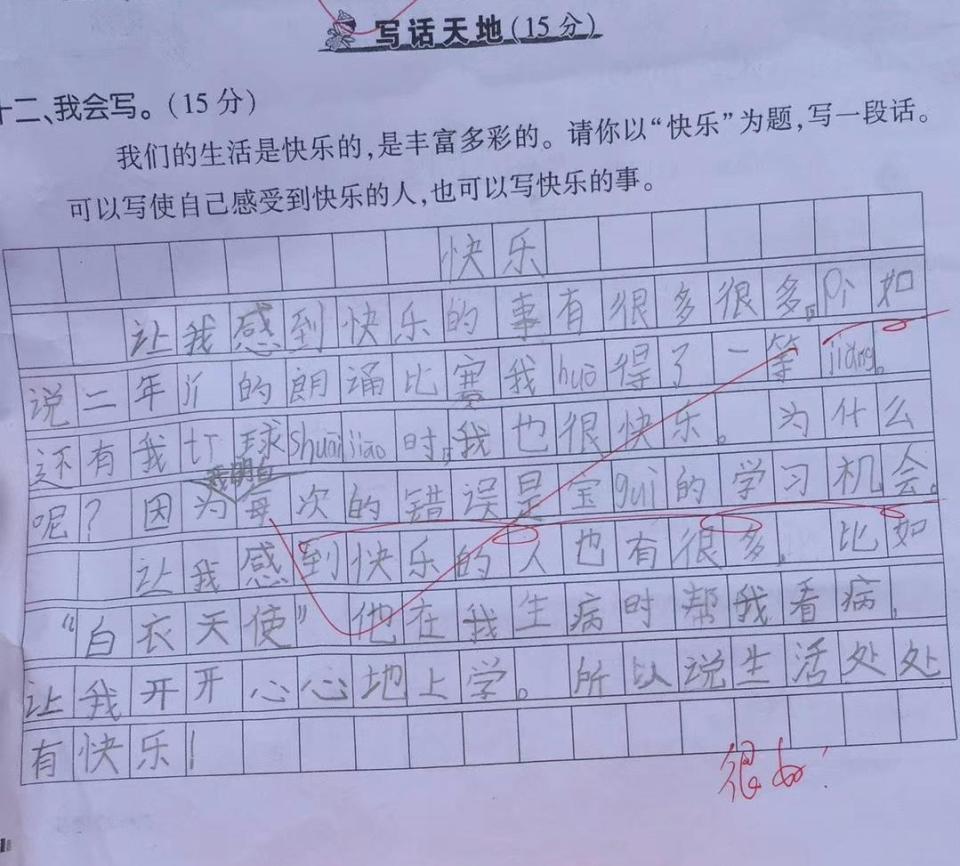 写话天地(15分)
十二、我会写。(15分)
我们的生活是快乐的,是丰富多彩的。请你以“快乐”为题,写一段话。
可以写使自己感受到快乐的人,也可以写快乐的事。
快乐
让我感到快乐的事有很多很多,pì如
说二年jí的朗诵比赛我huō得了一等jiǎng。
还有我tī球shuāi jiāo时,我也很快乐。为什么
我明白
呢?因为每次的错误是宝guì的学习机会。
让我感到快乐的人也有很多,比如
“白衣天使”他在我生病时帮我看病,
让我开开心心地上学。所以说生活处处
有快乐!
很好!